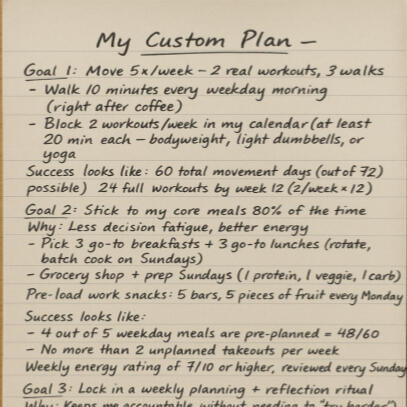 My Custom Plan –
Goal 1: Move 5x/week – 2 real workouts, 3 walks
– Walk 10 minutes every weekday morning
(right after coffee)
– Block 2 workouts/week in my calendar (at least
20 min each – bodyweight, light dumbbells, or
yoga
Success looks like: 60 total movement days (out of 72)
possible) 24 full workouts by week 12 (2/week × 12)
Goal 2: Stick to my core meals 80% of the time
Why: Less decision fatigue, better energy
– Pick 3 go-to breakfasts + 3 go-to lunches (rotate,
batch cook on Sundays)
– Grocery shop + prep Sundays (1 protein, 1 veggie, 1 carb)
Pre-load work snacks: 5 bars, 5 pieces of fruit every Monday
Success looks like:
– 4 out of 5 weekday meals are pre-planned = 48/60
– No more than 2 unplanned takeouts per week
Weekly energy rating of 7/10 or higher, reviewed every Sunday
Goal 3: Lock in a weekly planning + reflection ritual
Why: Keeps me accountable without needing to "try harder")